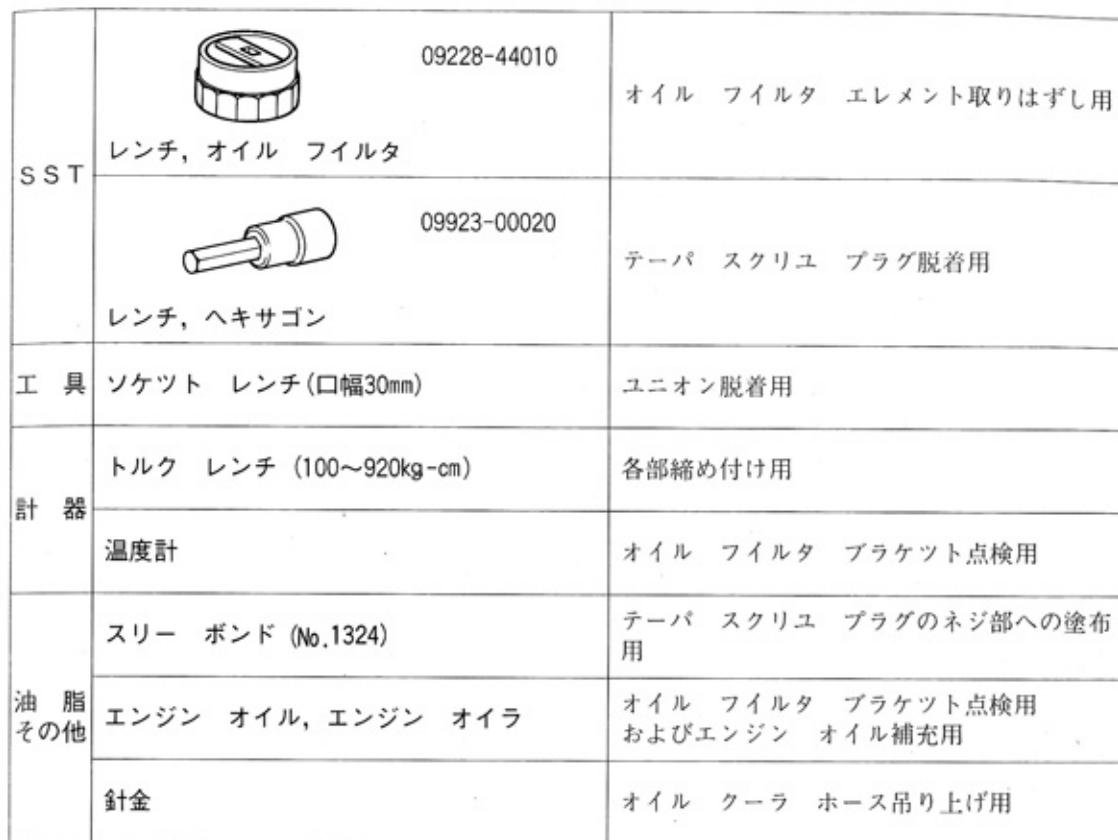 SST
09228-44010
レンチ，オイル　フイルタ
オイル　フイルタ　エレメント取りはずし用
09923-00020
レンチ，ヘキサゴン
テーパ　スクリユ　プラグ脱着用
工　具
ソケツト　レンチ(口幅30mm)
ユニオン脱着用
計　器
トルク　レンチ (100～920kg-cm)
各部締め付け用
温度計
オイル　フイルタ　ブラケツト点検用
油　脂
その他
スリー　ボンド (No.1324)
テーパ　スクリユ　プラグのネジ部への塗布
用
エンジン　オイル，エンジン　オイラ
オイル　フイルタ　ブラケツト点検用
およびエンジン　オイル補充用
針金
オイル　クーラ　ホース吊り上げ用